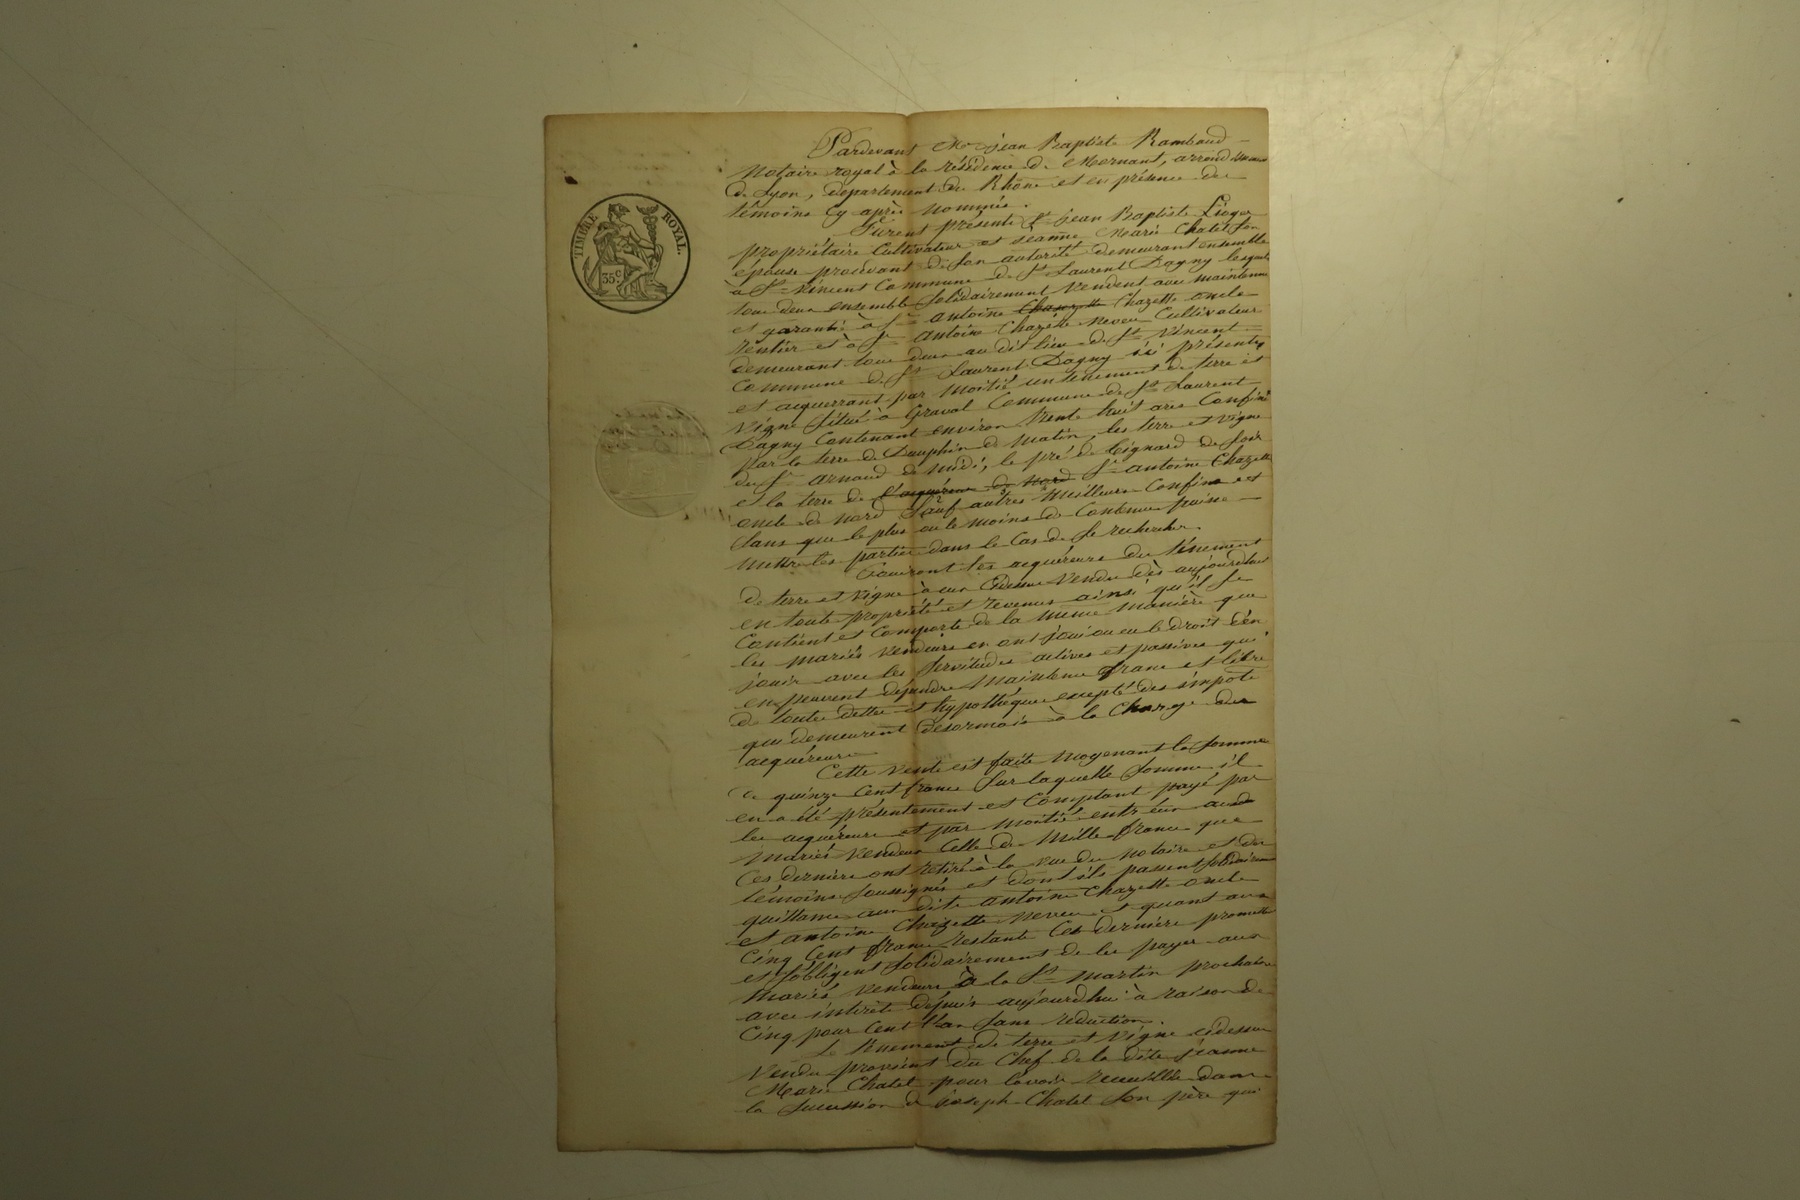 TIMBRE ROYAL
35 c
Pardevant Me jean Baptiste Rambaud
Notaire royal à la résidence de Mornant, arrondissement
de Lyon, département du Rhône et en présence des
témoins cy après nommés.
Furent présents Sr jean Baptiste Lioger
propriétaire Cultivateur et jeanne Marie Chatel son
épouse procédant de son autorité demeurant ensemble
à St vincent Commune de St Laurent Dagny lesquels
tous deux ensemble solidairement vendent avec maintenue
et garantie à Sr antoine Chazette Chazette oncle
rentier et à Sr antoine Chazette neveu Cultivateur
demeurant tous deux au dit lieu de St vincent
Commune de St Laurent Dagny ici présents
et acquerrant par moitié un tenement de terre et
vigne situé à Graval Commune de St Laurent
Dagny Contenant environ trente huit ares Confiné
par la terre de Dauphin de matin, les terre et vigne
du Sr arnaud de midi, le pré de Cignard de soir
et la terre de l'acquéreur de nord Sr antoine Chazette
oncle de nord sauf autres meilleurs Confins et
sans que le plus ou le moins de Contenue puisse
mettre les parties dans le Cas de se rechercher.
Jouiront les acquéreurs du tènement
de terre et vigne à eux Cidessus vendu dès aujourdhui
en toute propriété et revenus ainsi qu'il se
Contient et Comporte de la même manière que
les mariés vendeurs en ont joui ou eu le droit d'en
jouir avec les servitudes actives et passives qui
en peuvent dépendre maintenu franc et libre
de toutes dettes et hypothèques excepté des impots
qui demeurent désormais à la Charge des
acquéreurs
Cette vente est faite moyenant la somme
de quinze Cent francs sur laquelle somme il
en a été présentement et Comptant payé par
les acquéreurs et par moitié entr'eux aux
mariés vendeurs Celle de mille francs que
Ces derniers ont retiré à la vue du notaire et des
témoins soussignés et dont ils passent solidairement
quittance aux dits antoine Chazette oncle
et antoine Chazette neveu et quant aux
Cinq Cent francs restants Ces derniers promettent
et s'obligent solidairement de les payer aux
mariés vendeurs à la St martin prochaine
avec intérêts depuis aujourdhui à raison de
Cinq pour Cent l'an sans réduction.
Le tenement de terre et vigne cidessus
vendu provient du Chef de la dite jeanne
Marie Chatel pour l'avoir recueillie dans
la succession de joseph Chatel son père qui